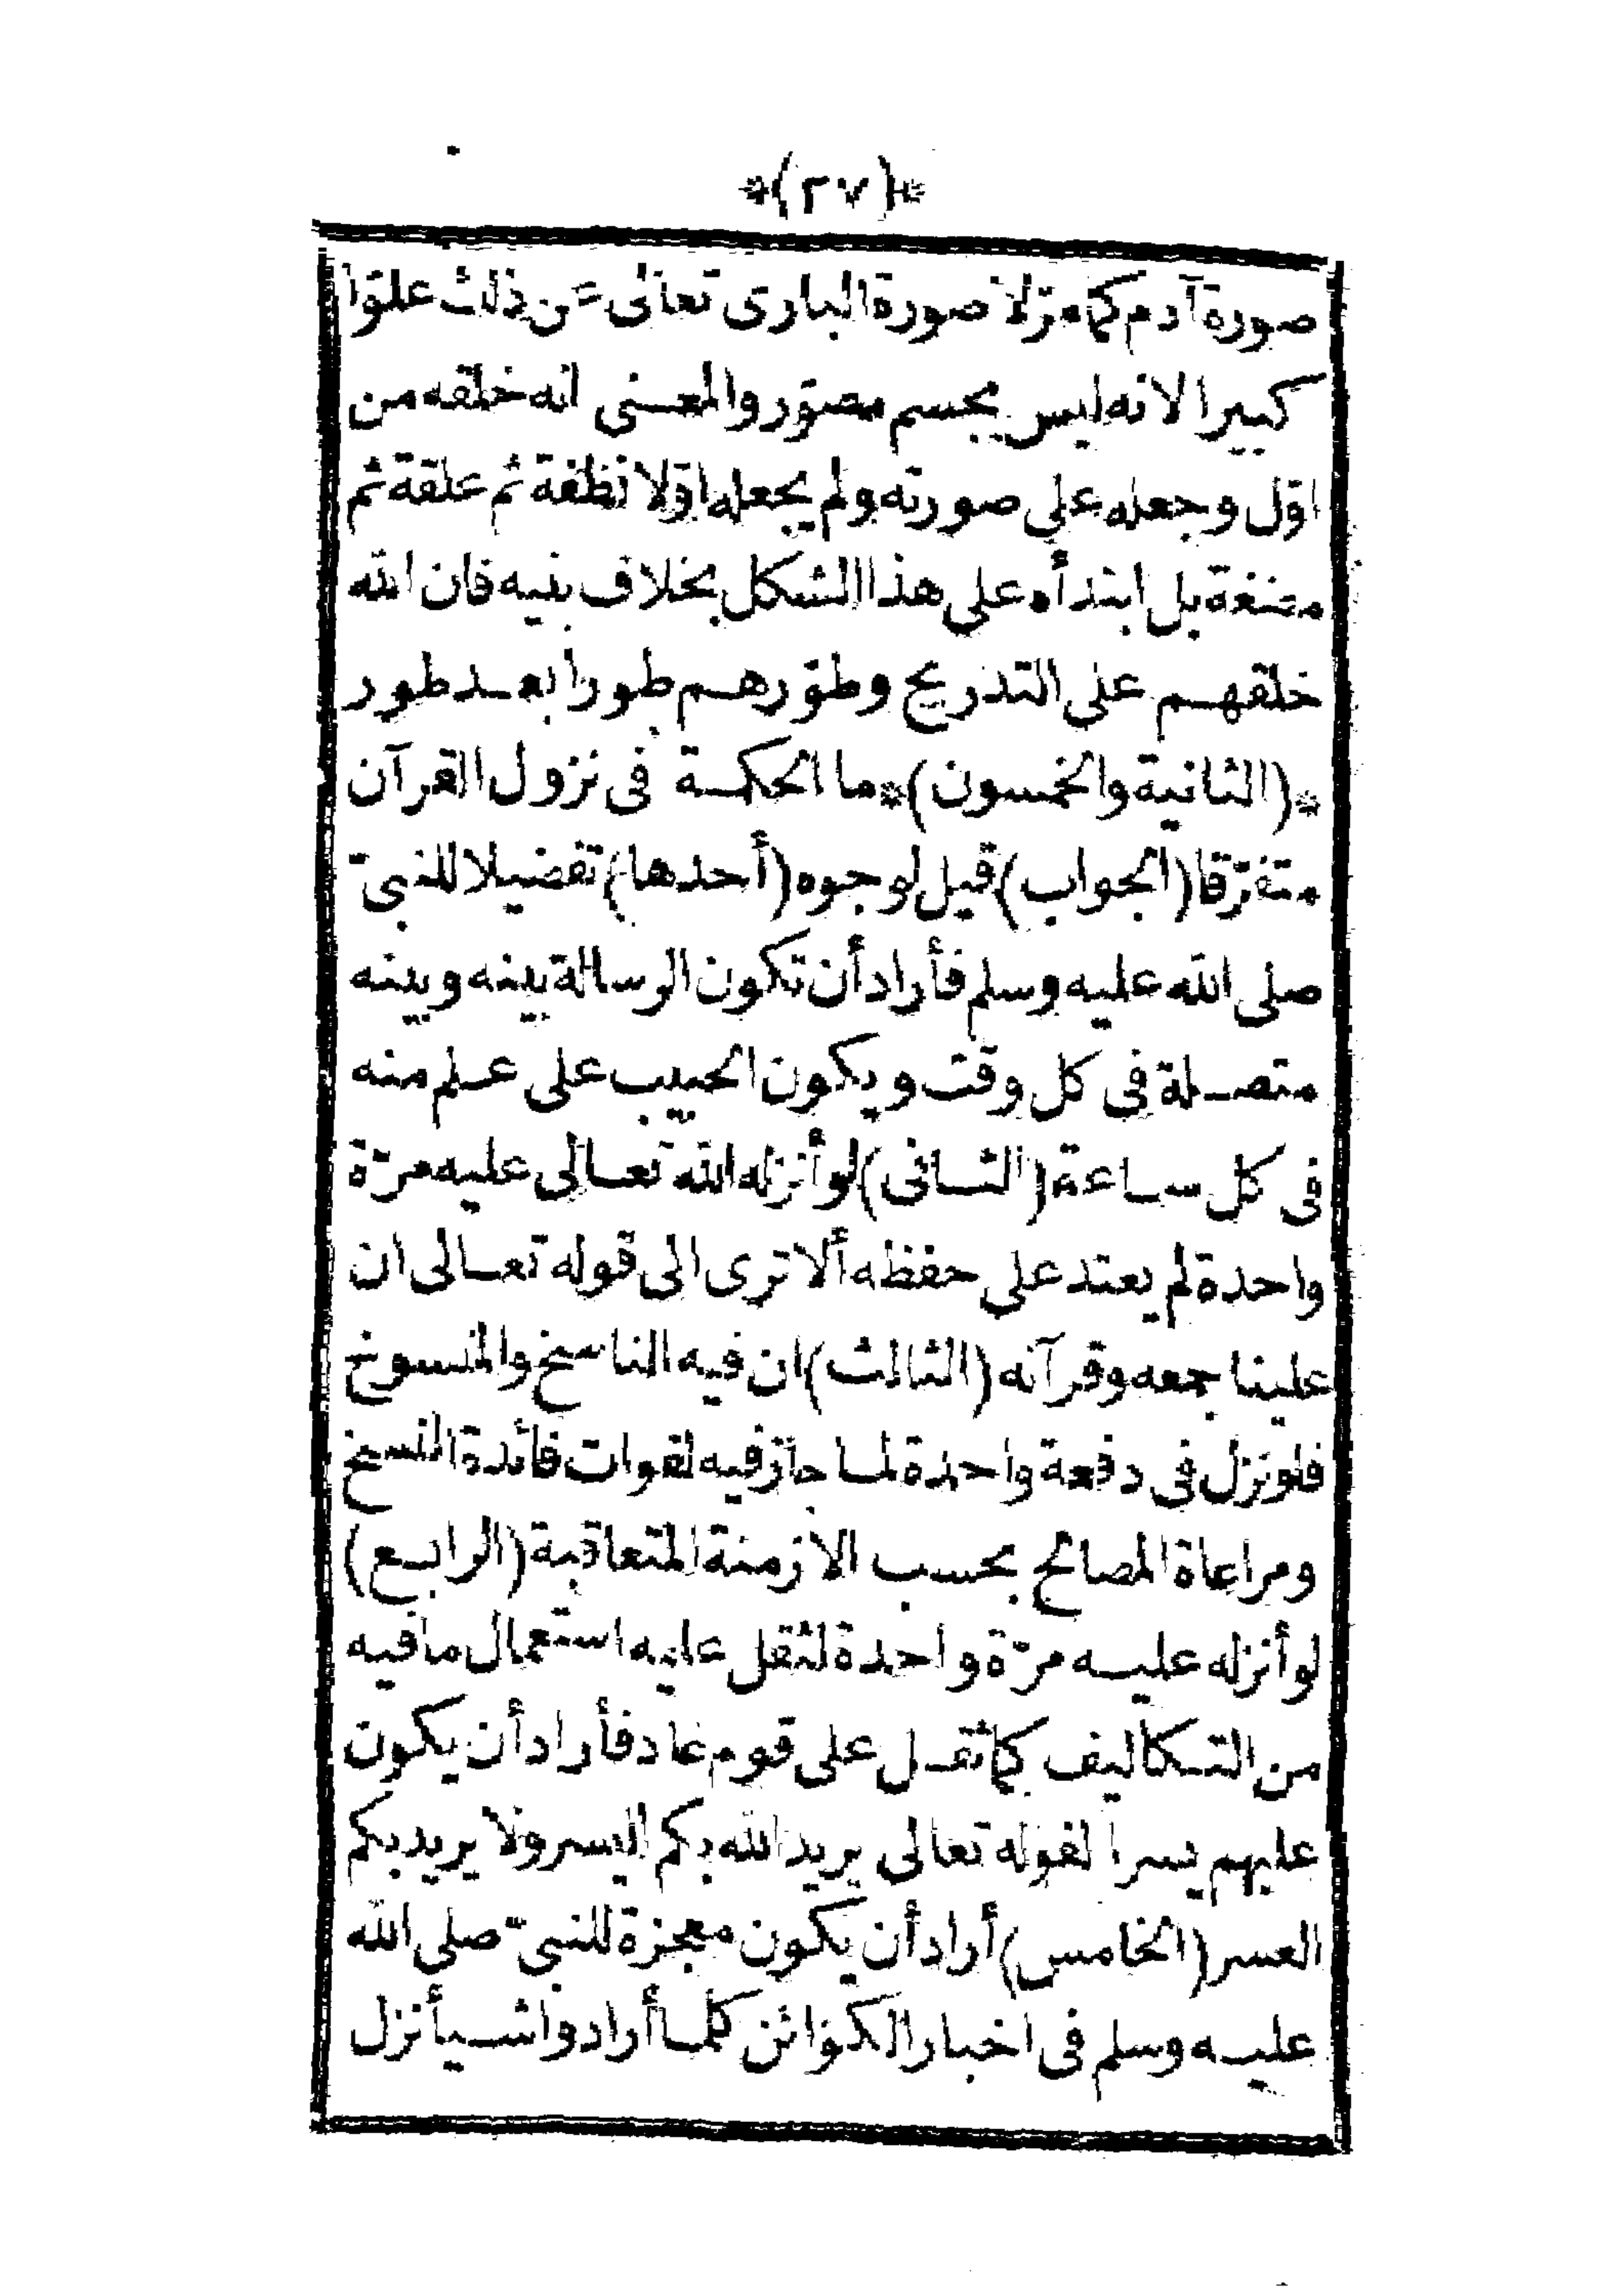 *(٢٧)*
صورة آدم كما مرّ لا صورة البارى تعالى عن ذلك علوّا
كبيرا لانه ليس بجسم مصوّر والمعنى انه خلقه من
اوّل وجعله على صورته ولم يجعله اوّلا نطفة ثم علقة ثم
مضغة بل ابتدأه على هذا الشكل بخلاف بنيه فان الله
خلقهم على التدريج وطوّرهم طورا بعد طور
*(الثانية والخمسون)* ما الحكمة فى نزول القرآن
متفرّقا (الجواب) قيل لوجوه (أحدها) تفضيلا للنبىّ
صلى الله عليه وسلم فأراد أن تكون الرسالة بينه وبينه
متصلة فى كل وقت ويكون الحبيب على علم منه
فى كل ساعة (الثانى) لو أنزله الله تعالى عليه مرّة
واحدة لم يعتد على حفظه ألا ترى الى قوله تعالى ان
علينا جمعه وقرآنه (الثالث) ان فيه الناسخ والمنسوخ
فلو نزل فى دفعة واحدة لما جاز فيه لفوات فائدة النسخ
ومراعاة المصالح بحسب الازمنة المتعاقبة (الرابع)
لو أنزله عليه مرّة واحدة لثقل عليه استعمال ما فيه
من التكاليف كما ثقل على قوم عاد فأراد أن يكون
عليهم يسرا لقوله تعالى يريد الله بكم اليسر ولا يريد بكم
العسر (الخامس) أراد أن يكون معجزة للنبىّ صلى الله
عليه وسلم فى اخبار الكوائن كلما أرادوا شيأ نزل